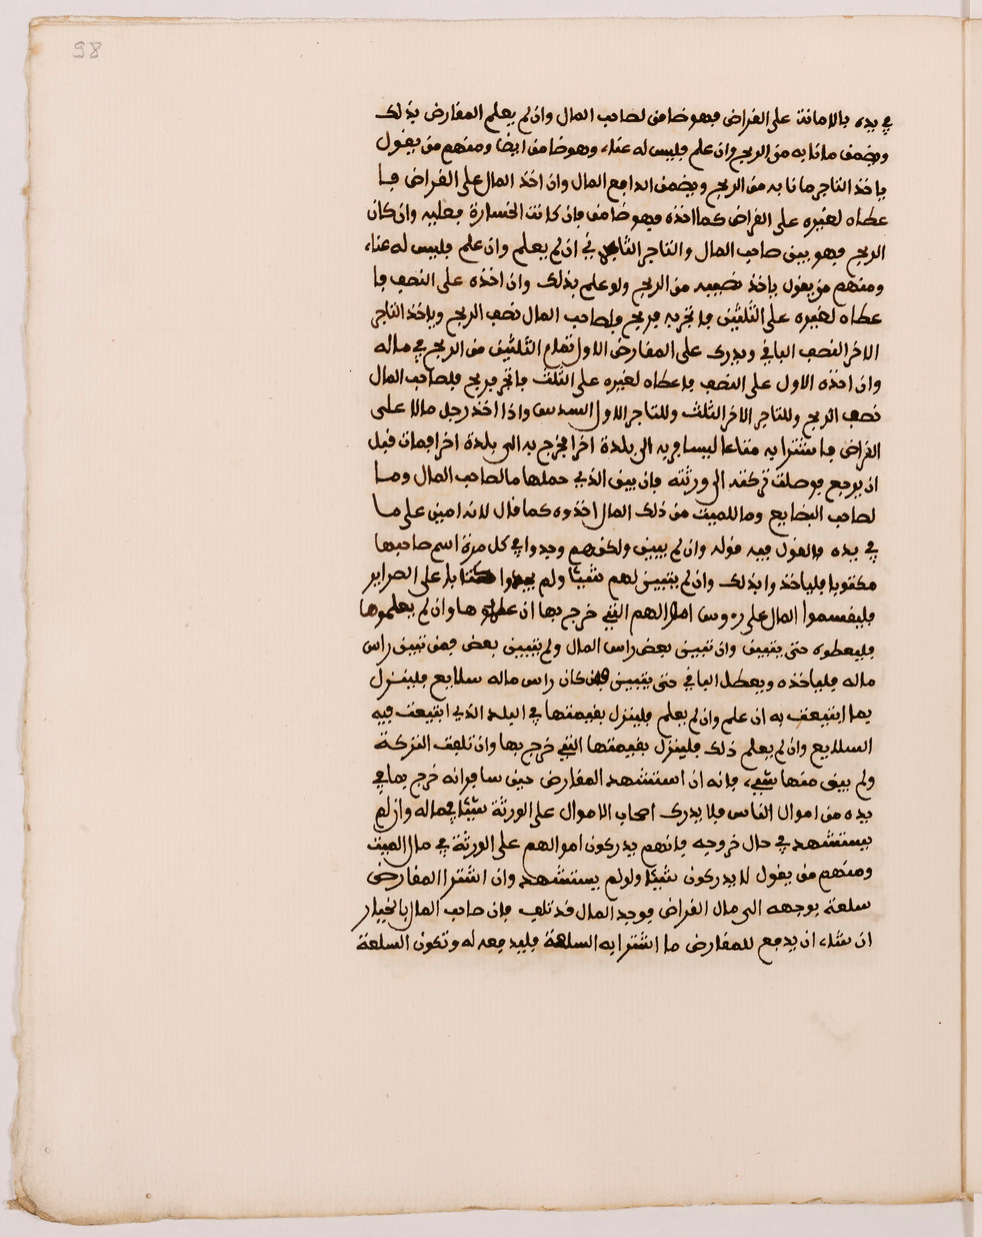 98
في يده بالامانة على القراض فهو ضامن لصاحب المال وان لم يعلم المقارض بذلك
ويضمن ما نابه من الربح وان علم فليس له عناء وهو ضامن ايضا ومنهم من يقول
ياخذ التاجر ما نابه من الربح ويضمن الدافع المال وان اخذ المال على القراض فا
عطاه لغيره على القراض كما اخذه فهو ضامن فان كانت الخسارة فعليه وان كان
الربح فهو بين صاحب المال والتاجر الثاني ان لم يعلم وان علم فليس له عناء
ومنهم من يقول ياخذ نصيبه من الربح ولو علم بذلك وان اخذه على النصف فا
عطاه لغيره على الثلثين فاتجر به فربح فلصاحب المال نصف الربح وياخذ التاجر
الاخر النصف الباقي ويدرك على المقارض الاول تمام الثلثين من الربح في ماله
وان اخذه الاول على النصف فاعطاه لغيره على الثلث فاتجر فربح فلصاحب المال
نصف الربح وللتاجر الاخر الثلث وللتاجر الاول السدس واذا اخذ رجل مالا على
القراض فاشترا به متاعا ليسافر به الى بلدة اخرا فخرج به الى بلدة اخرا فمات قبل
ان يرجع فوصلت تركته الى ورثته فان بين الذي حملها ما لصاحب المال وما
لصاحب البضايع وما للميت من ذلك المال اخذوه كما قال لانه امين على ما
في يده فالقول فيه قوله وان لم يبين ولكنهم وجدوا في كل صرة اسم صاحبها
مكتوبا فلياخذوا بذلك وان لم يتبين لهم شيئا ولم يجدوا كتابا على الصراير
فليقسموا المال على رءوس اموالهم التي خرج بها ان علموها وان لم يعلموها
فليعطوه حتى يتبين وان تبين بعض راس المال ولم يتبين بعض فمن تبين راس
ماله فلياخذه ويعطل الباقي حتى يتبين فان كان راس ماله سلايع فلينزل
بما ابتيعت به ان علم وان لم يعلم فلينزل بقيمتها في البلد الذي ابتيعت فيه
السلايع وان لم يعلم ذلك فلينزل بقيمتها التي خرج بها وان تلفت التركة
ولم يبق منها شيء فانه ان استشهد المقارض حين سافر انه خرج بما في
يده من اموال الناس فلا يدرك اصحاب الاموال على الورثة شيئا في ماله وان لم
يستشهد في حال خروجه فانهم يدركون اموالهم على الورثة في مال الميت
ومنهم من يقول لا يدركون شيئا ولو لم يستشهد وان اشترا المقارض
سلعة بوجهه الى مال القراض فوجد المال قد تلف فان صاحب المال بالخيار
ان شاء ان يدفع للمقارض ما اشترا به السلعة فليدفعه له وتكون السلعة